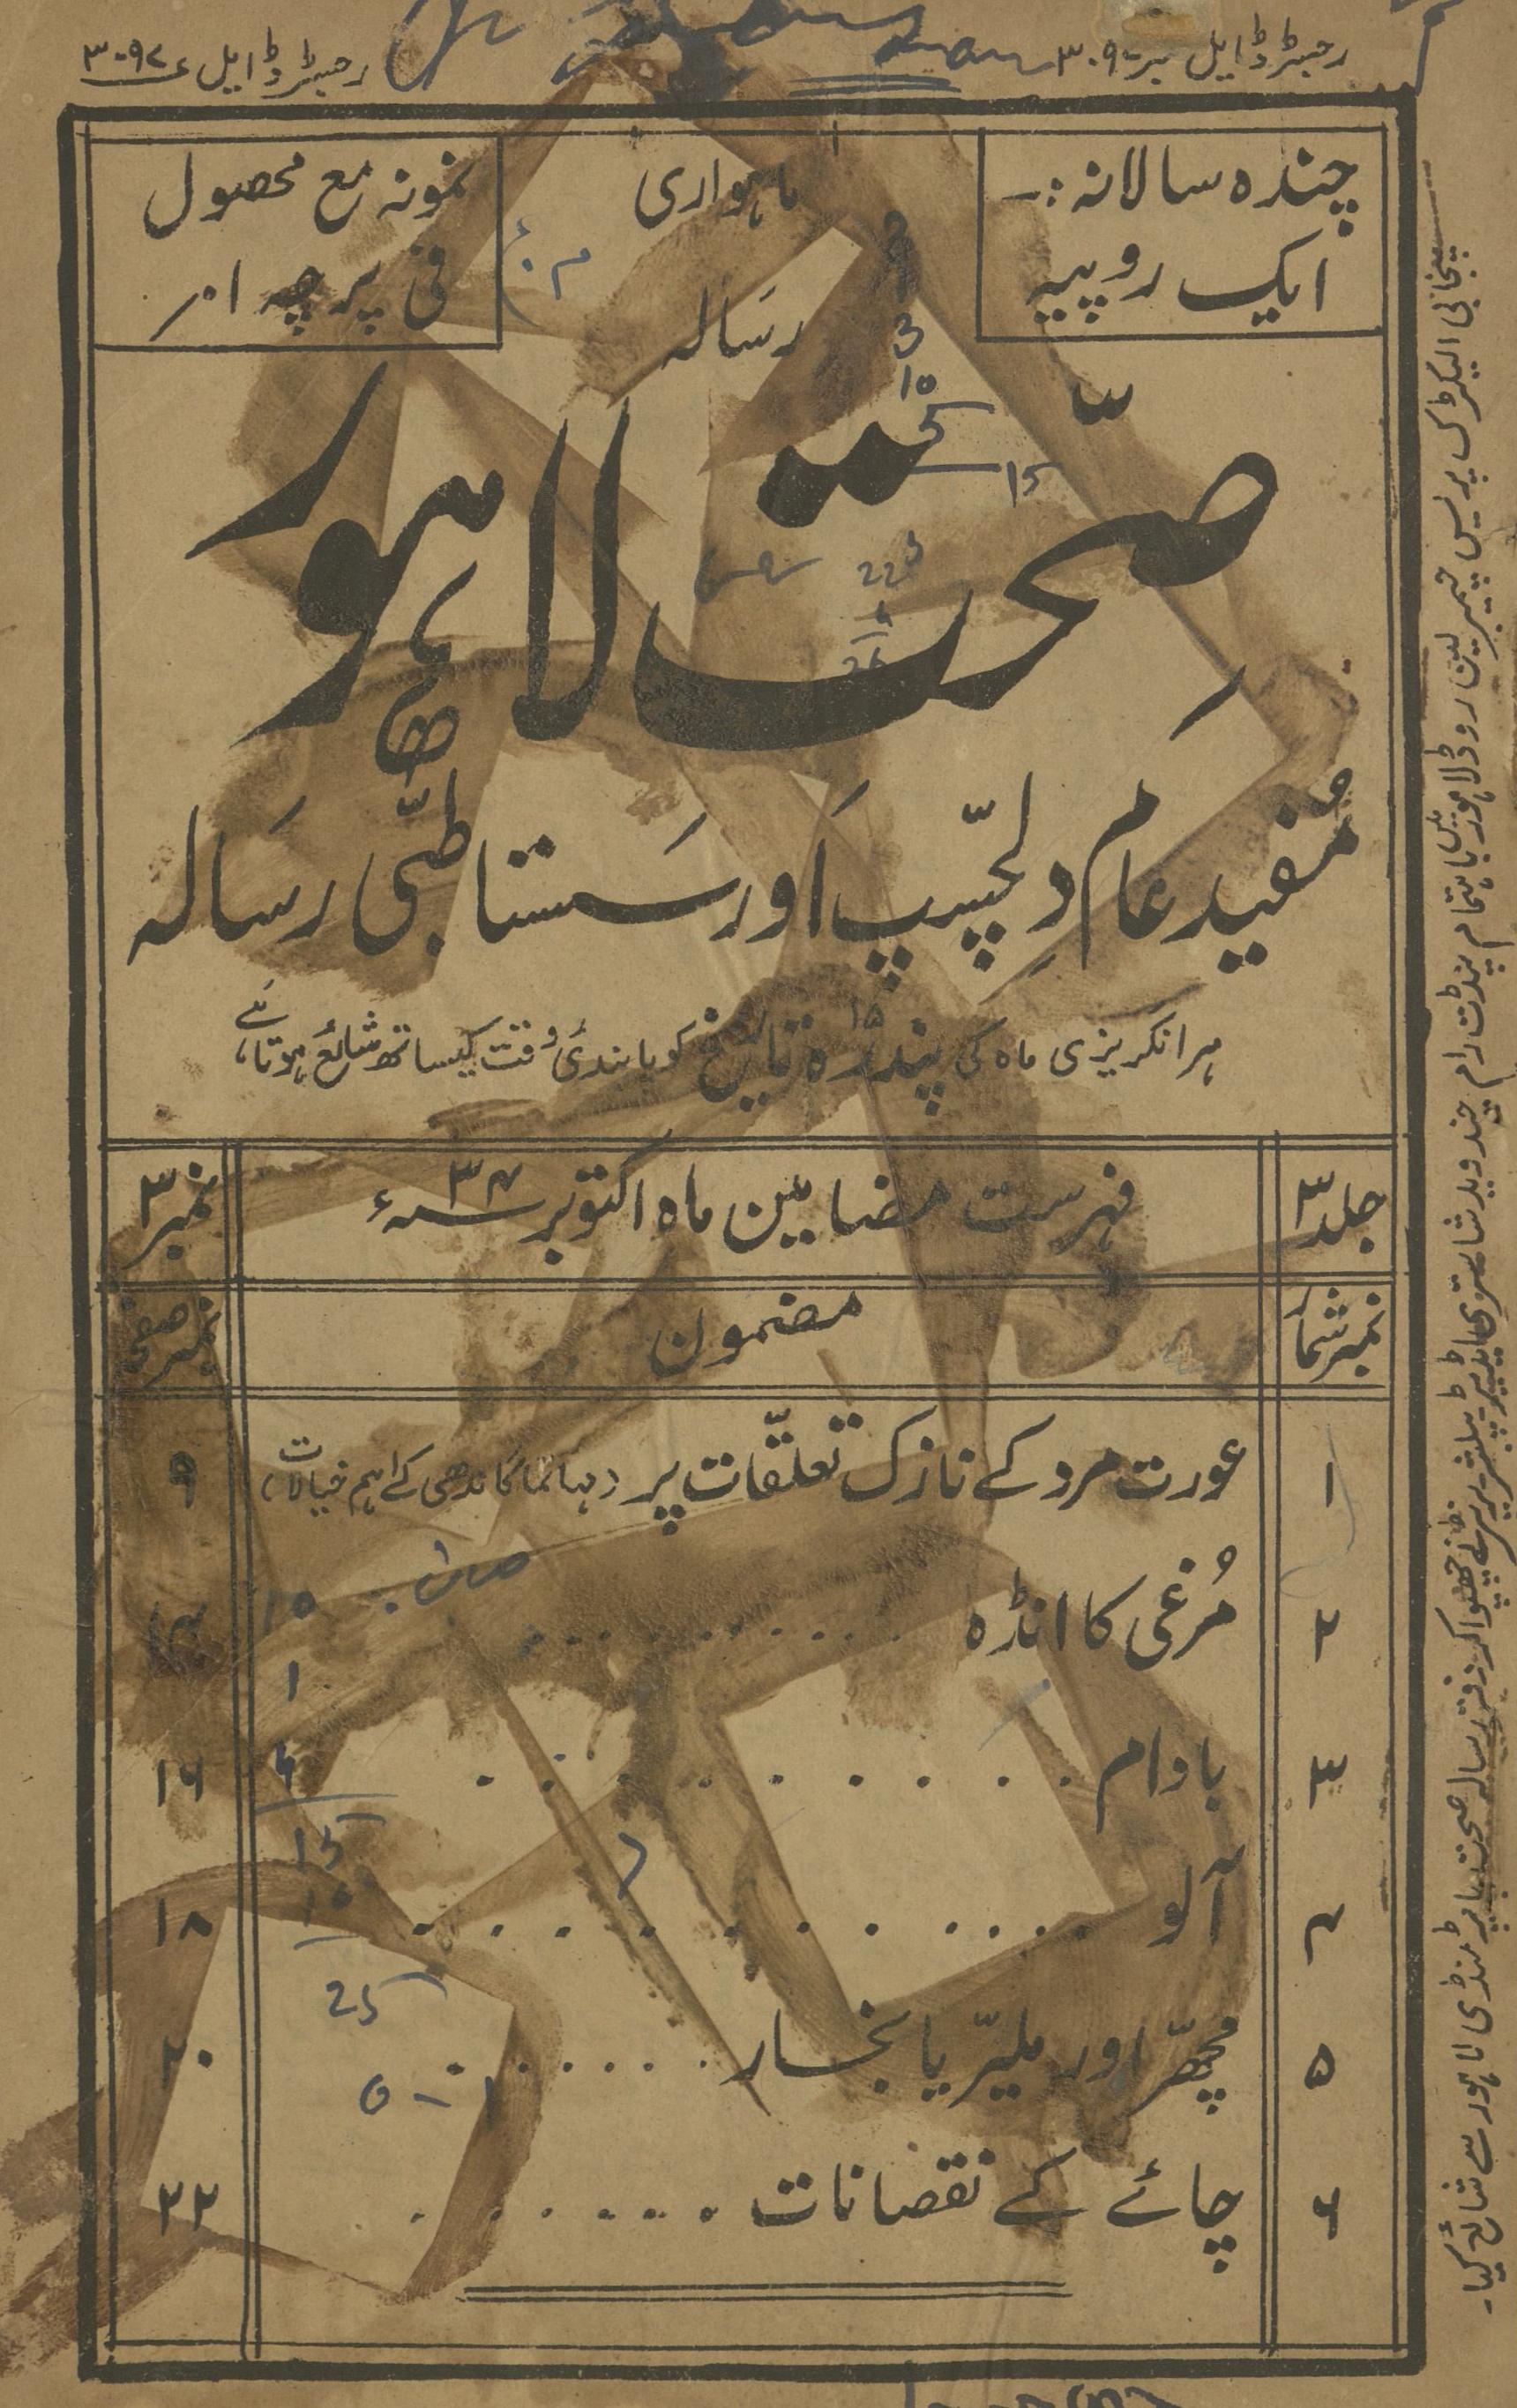 رجسٹرڈ ایل نمبر ۳۰۹۷
رجسٹرڈ ایل ۳۰۹۷
چندہ سالانہ :-
ایک روپیہ
ماہواری
رسالہ
نمونہ مع محصول
فی پرچہ ۱۰ر
صحت لاہور
مفید عام دلچسپ اور سستا طبّی رسالہ
ہر انگریزی ماہ کی پندرہ ۱۵ تاریخ کو پابندئ وقت کیساتھ شائع ہوتا ہے
جلد ۳
فہرست مضامین ماہ اکتوبر ۳۷ء
نمبر ۳
نمبر شمار
مضمون
نمبر صفحہ
۱ عورت مرد کے نازک تعلّقات پر (مہاتما گاندھی کے اہم خیالات) ۹
۲ مُرغی کا انڈہ . . . . . . . . . .
۳ بادام . . . . . . . . . . ۱۶
۴ آلو . . . . . . . . . . . ۱۸
۵ مچھّر اور ملیّریا بخار . . . . . . . ۲۰
۶ چائے کے نقصانات . . . . . . . ۲۲
15
22
10
1
4
15
10
25
پنجابی الیکٹرک پریس چیمبرلین روڈ لاہور میں باہتمام پنڈت رام چند وید شاستری ایڈیٹر پبلشر پرنٹر نے چھپوا کر دفتر رسالہ صحت پاپڑ منڈی لاہور سے شائع کیا۔